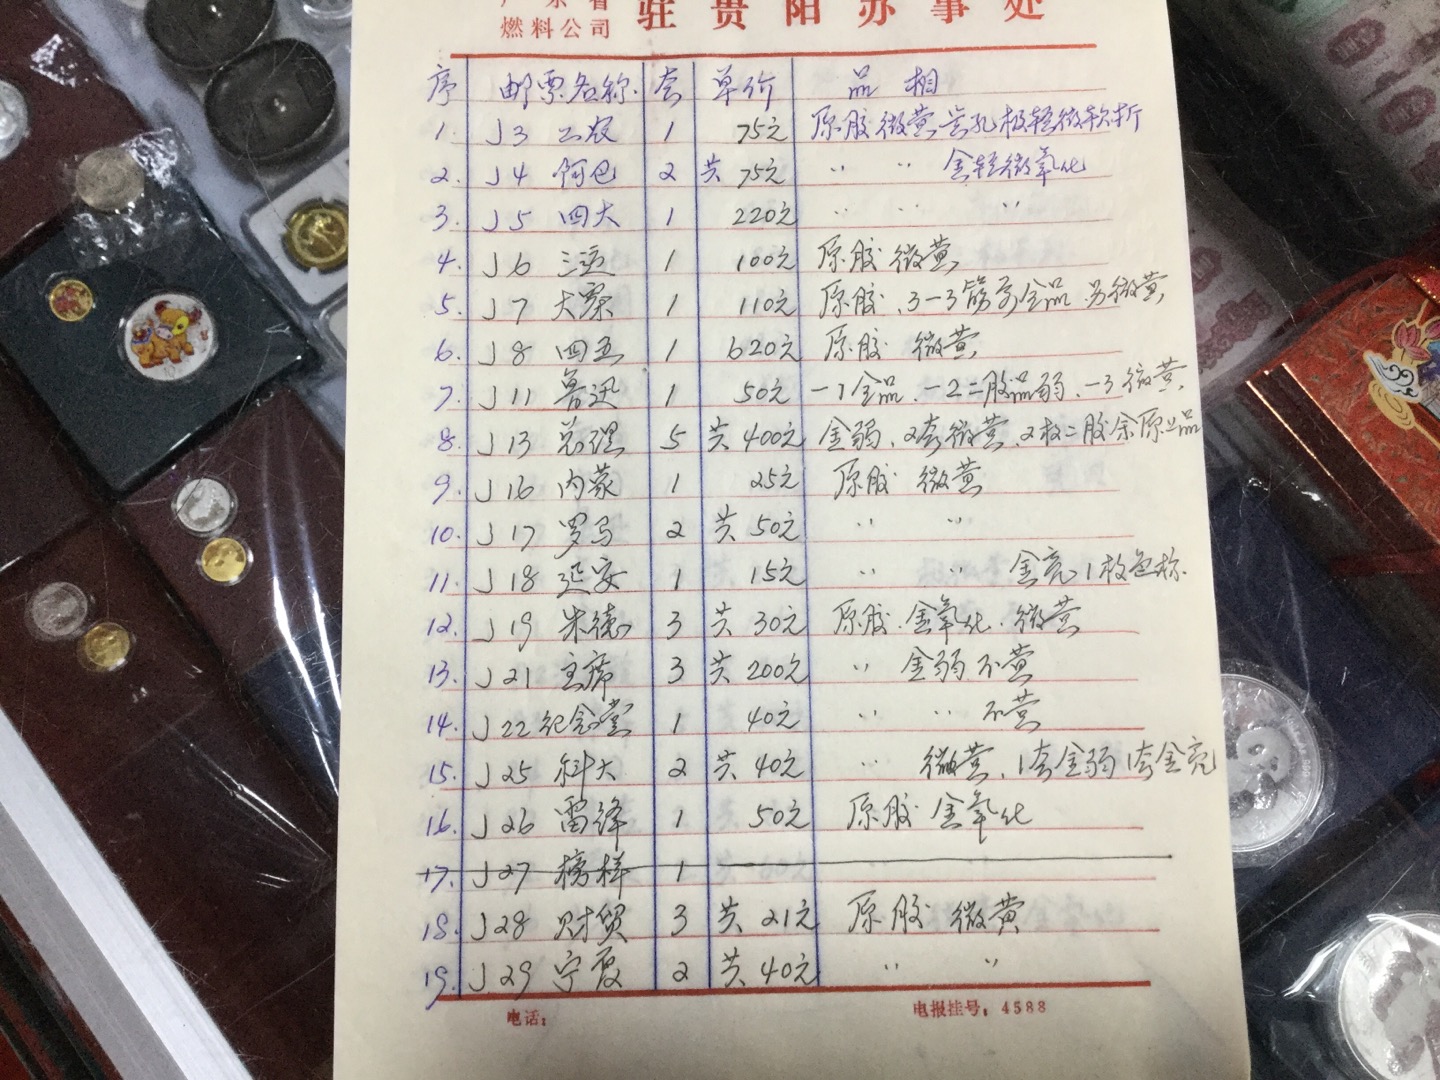 广东省
燃料公司 驻贵阳办事处
序 邮票名称 套 单价 品相
1. J3 工农 1 75元 原胶微黄 齿孔极轻微软折
2. J4 阿巴 2 共75元 〃 〃 金轻微氧化
3. J5 四大 1 220元 〃 〃 〃
4. J6 三运 1 100元 原胶 微黄
5. J7 大寨 1 110元 原胶、3-3筋票全品、另微黄
6. J8 四五 1 620元 原胶 微黄
7. J11 鲁迅 1 50元 -1全品、-2二胶品弱、-3微黄
8. J13 总理 5 共400元 金弱、2套微黄、2枚二胶余原上品
9. J16 内蒙 1 25元 原胶 微黄
10. J17 罗马 2 共50元 〃 〃
11. J18 延安 1 15元 〃 〃 金亮1枚色标
12. J19 朱德 3 共30元 原胶.金氧化.微黄
13. J21 主席 3 共200元 〃 金弱 不黄
14. J22 纪念堂 1 40元 〃 〃 不黄
15. J25 科大 2 共40元 〃 微黄、1套金弱1套金亮
16. J26 雷锋 1 50元 原胶 金氧化
17. J27 榜样 1
18. J28 财贸 3 共21元 原胶 微黄
19. J29 宁夏 2 共40元 〃 〃
电话: 电报挂号:4588